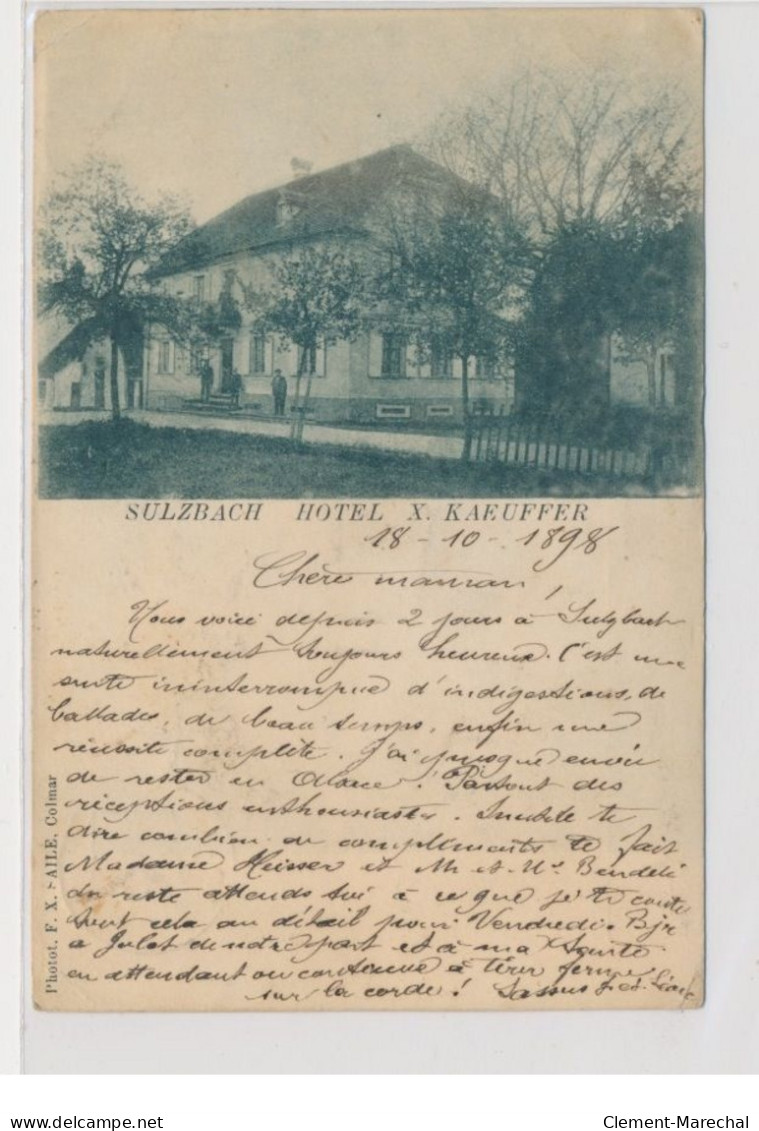 SULZBACH HOTEL X. KAEUFFER
18 - 10 - 1898
Chère maman!
Nous voici depuis 2 jours à Sulzbach
naturellement toujours heureux. C'est une
suite ininterrompue d'indigestions, de
ballades, de beau temps, enfin une
réussite complète. J'ai presque envie
de rester en Alsace. Partout des
réceptions enthousiastes. Inutile te
dire combien de compliments te fait
Madame Heisser et M et M
du reste attends toi à ce que je te conte
tout cela au détail pour Vendredi. Bjr
à Jules de notre part et à ma
en attendant on continue à tirer ferme
sur la corde!
Photot. F. X. SAILE, Colmar
Clement-Marechal